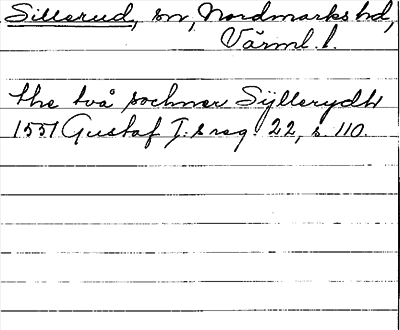 Sillerud, sn, Nordmarks hd,
Värml. l.
the två sochner Syllerydh
1551 Gustaf I:s reg. 22, s. 110.